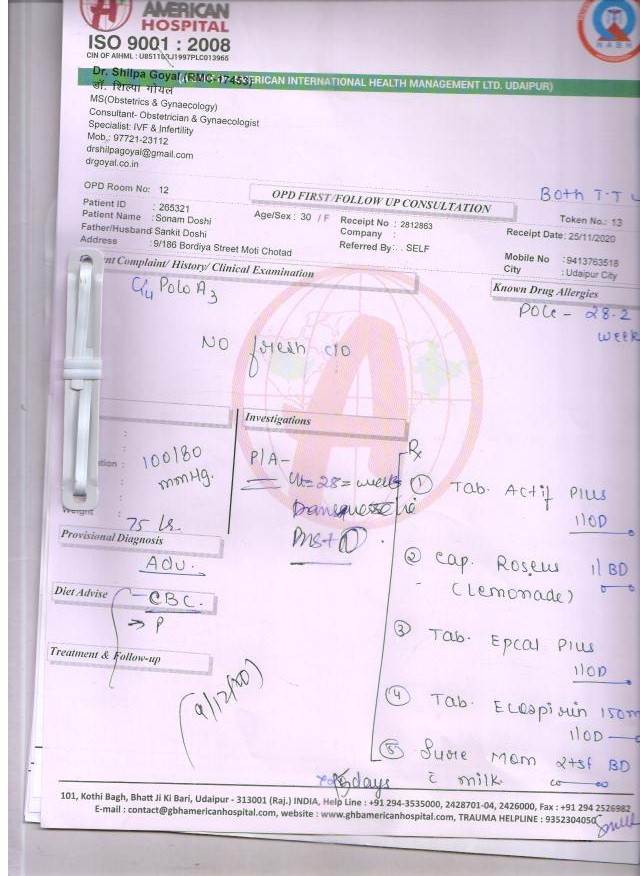 AMERICAN
HOSPITAL
ISO 9001 : 2008
CIN OF AIHML : U85110RJ1997PLC013965
Dr. Shilpa Goyal (RMC-17453)
AMERICAN INTERNATIONAL HEALTH MANAGEMENT LTD. UDAIPUR)
डॉ. शिल्पा गोयल
MS(Obstetrics & Gynaecology)
Consultant- Obstetrician & Gynaecologist
Specialist: IVF & Infertility
Mob,: 97721-23112
drshilpagoyal@gmail.com
drgoyal.co.in
OPD Room No: 12
OPD FIRST/FOLLOW UP CONSULTATION
Both T.T
Token No.: 13
Patient ID : 265321
Patient Name : Sonam Doshi
Age/Sex : 30 / F
Receipt No : 2812863
Receipt Date: 25/11/2020
Father/Husband Sankit Doshi
Company :
Address : 9/186 Bordiya Street Moti Chotad
Referred By: . SELF
Mobile No : 9413763518
City : Udaipur City
nt Complaint/ History/ Clinical Examination
Known Drug Allergies
G4 P0L0 A3
POG - 28.2
week
NO fresh c/o
Investigations
P/A-
Rx
100/80
mmHg.
Weight
75
① Tab. Actif Plus
1 OD
Provisional Diagnosis
Adv.
② Cap. Roseus 1 BD
(Lemonade)
Diet Advise
CBC.
→ P
③ Tab. Epcal Plus
1 OD
Treatment & Follow-up
9/12/20
④ Tab. Ecospirin 150m
1 OD
⑤ Sure Mom 2tsf BD
c milk
days
101, Kothi Bagh, Bhatt Ji Ki Bari, Udaipur - 313001 (Raj.) INDIA, Help Line : +91 294-3535000, 2428701-04, 2426000, Fax : +91 294 2526982
E-mail : contact@gbhamericanhospital.com, website : www.ghbamericanhospital.com, TRAUMA HELPLINE : 9352304050